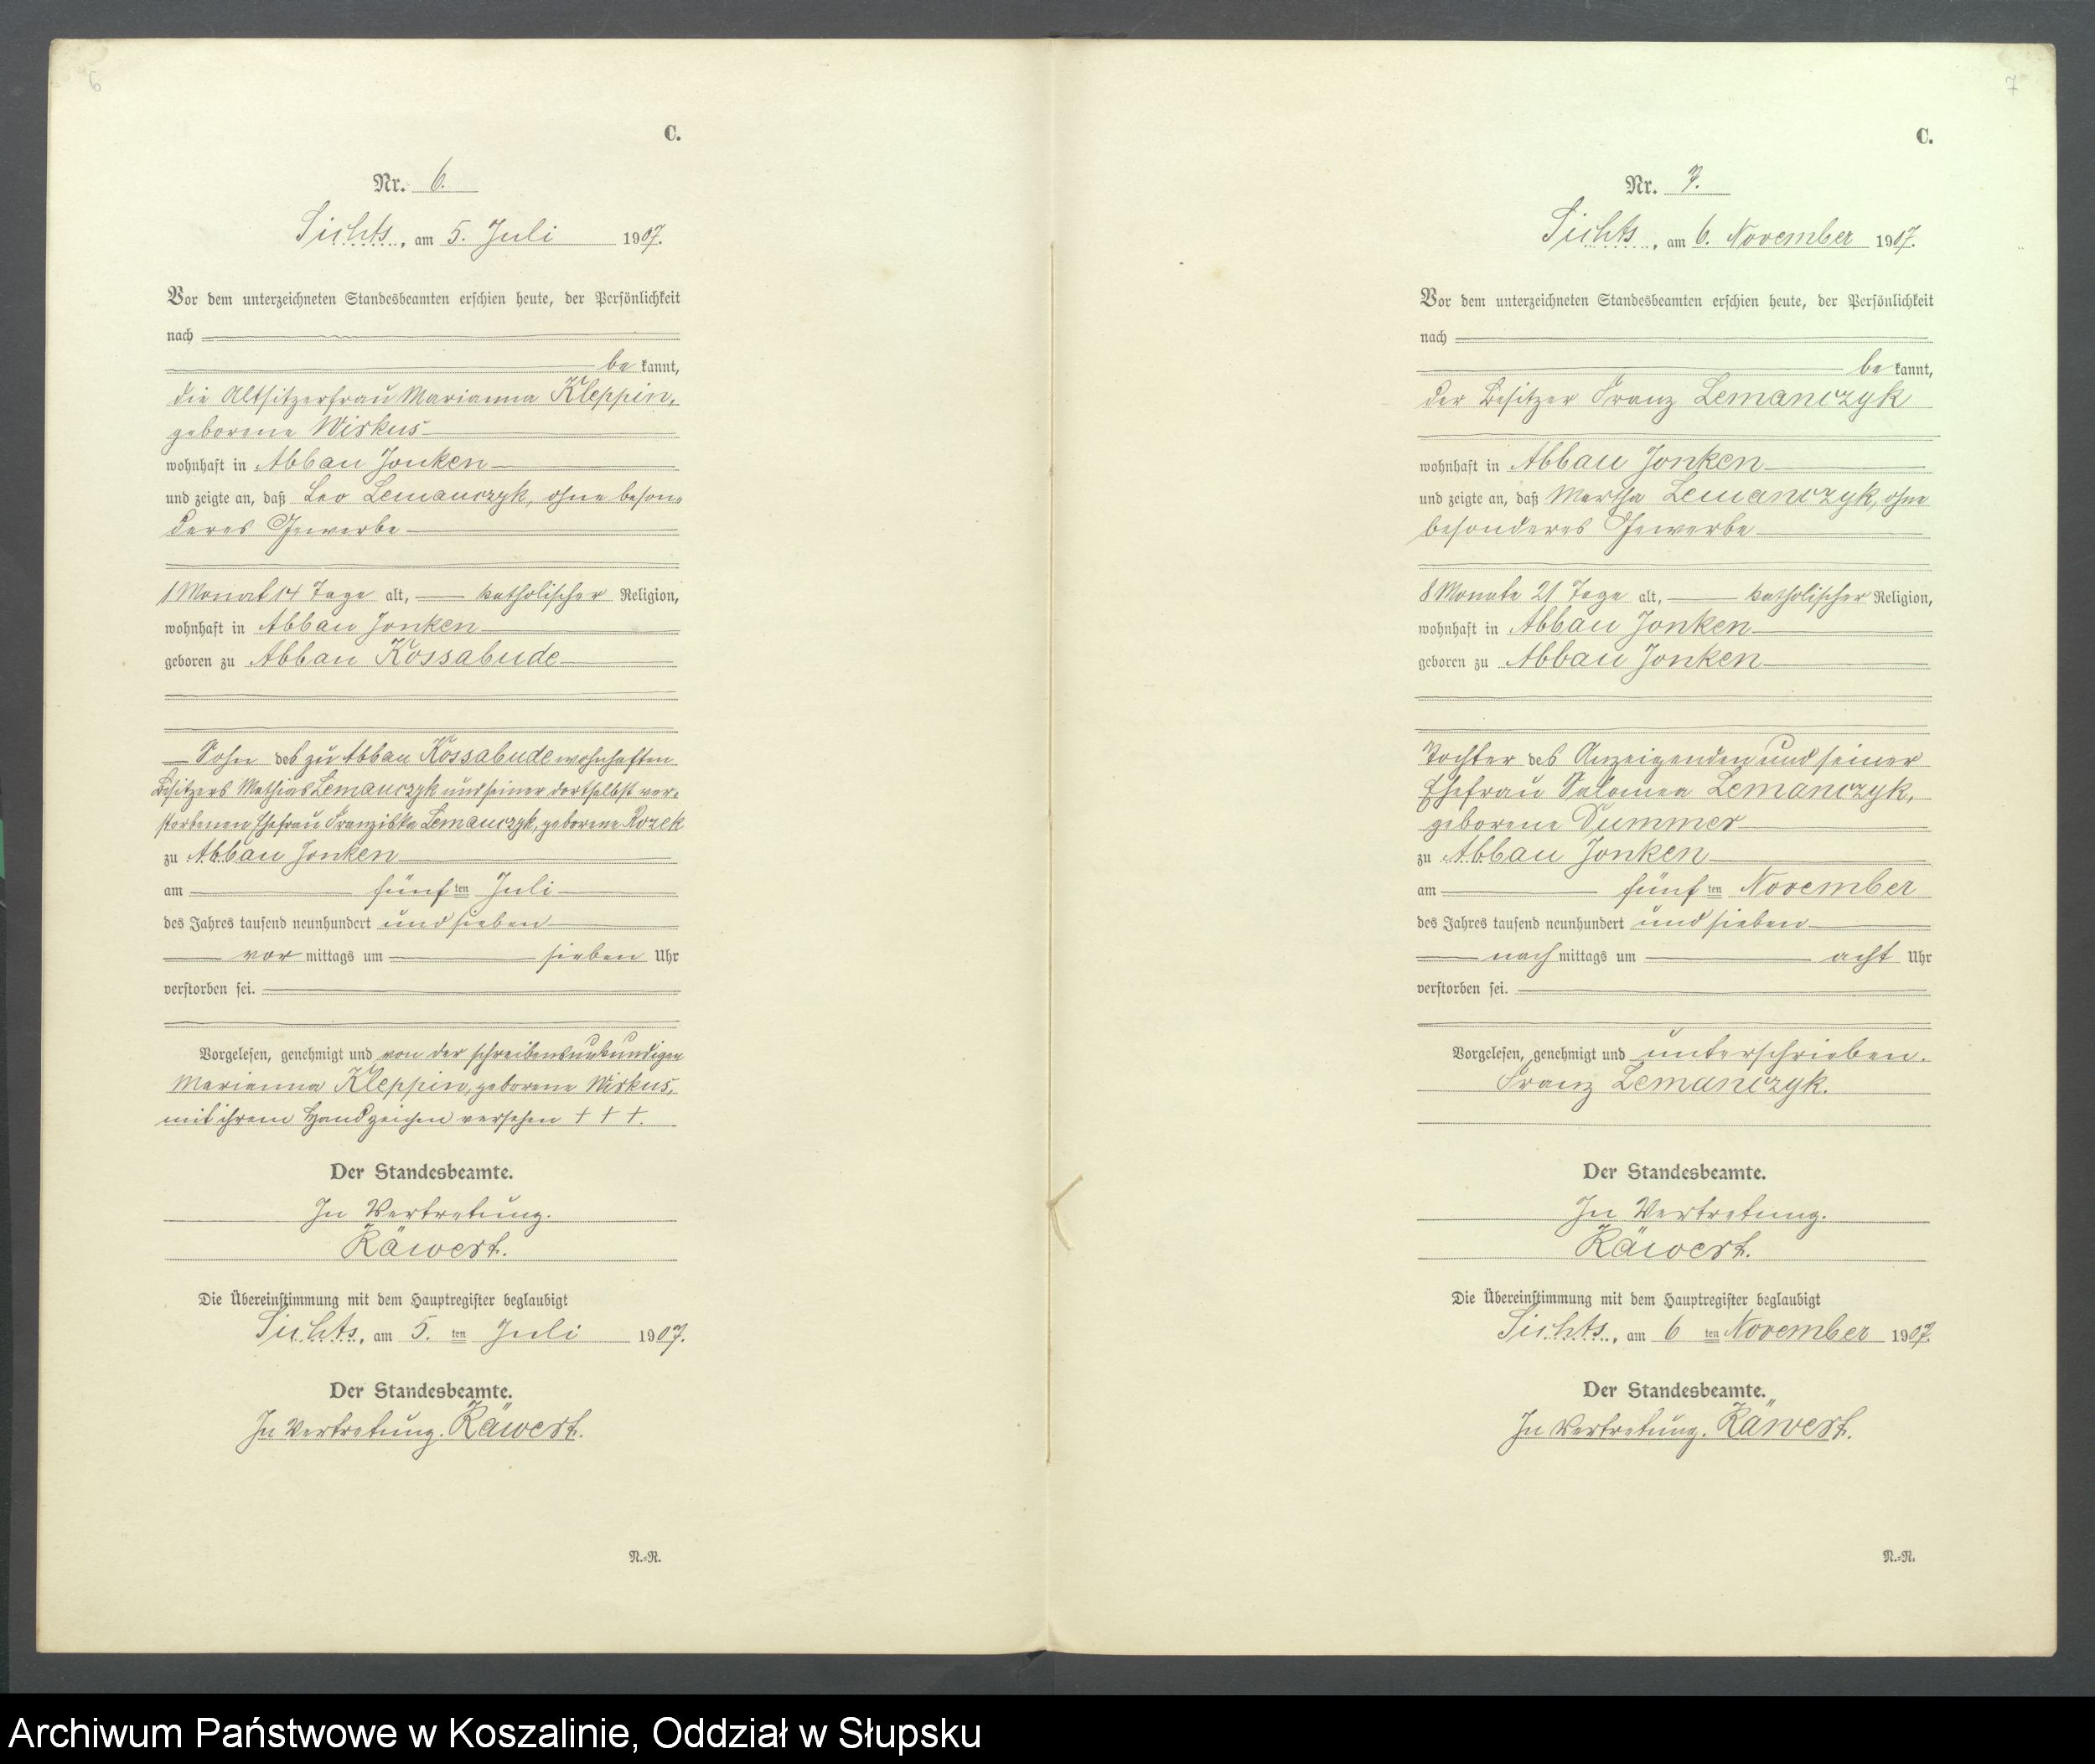 6
C.
Nr. 6.
Sichts, am 5. Juli 1907.
Vor dem unterzeichneten Standesbeamten erschien heute, der Persönlichkeit
nach
be kannt,
die Altsitzerfrau Marianna Kleppin,
geborene Wirkus
wohnhaft in Abbau Jonken
und zeigte an, daß Leo Lemanczyk, ohne beson-
deres Gewerbe
1 Monat 14 Tage alt, katholischer Religion,
wohnhaft in Abbau Jonken
geboren zu Abbau Kossabude
Sohn des zu Abbau Kossabude wohnhaften
Besitzers Mathias Lemanczyk und seiner dortselbst ver-
storbenen Ehefrau Franziska Lemanczyk, geborene Rozek
zu Abbau Jonken
am fünf ten Juli
des Jahres tausend neunhundert und sieben
vor mittags um sieben Uhr
verstorben sei.
Vorgelesen, genehmigt und von der schreibensunkundigen
Marianna Kleppin, geborene Wirkus,
mit ihrem Handzeichen versehen + + +.
Der Standesbeamte.
In Vertretung.
Räwert.
Die Übereinstimmung mit dem Hauptregister beglaubigt
Sichts, am 5. ten Juli 1907.
Der Standesbeamte.
In Vertretung. Räwert.
N.=R.
7
C.
Nr. 7.
Sichts, am 6. November 1907.
Vor dem unterzeichneten Standesbeamten erschien heute, der Persönlichkeit
nach
be kannt,
der Besitzer Franz Lemanczyk
wohnhaft in Abbau Jonken
und zeigte an, daß Martha Lemanczyk, ohne
besonderes Gewerbe
8 Monate 21 Tage alt, katholischer Religion,
wohnhaft in Abbau Jonken
geboren zu Abbau Jonken
Tochter des Anzeigenden und seiner
Ehefrau Salomea Lemanczyk,
geborene Dummer
zu Abbau Jonken
am fünf ten November
des Jahres tausend neunhundert und sieben
nach mittags um acht Uhr
verstorben sei.
Vorgelesen, genehmigt und unterschrieben.
Franz Lemanczyk.
Der Standesbeamte.
In Vertretung.
Räwert.
Die Übereinstimmung mit dem Hauptregister beglaubigt
Sichts, am 6 ten November 1907.
Der Standesbeamte.
In Vertretung. Räwert.
N.=R.
Archiwum Państwowe w Koszalinie, Oddział w Słupsku